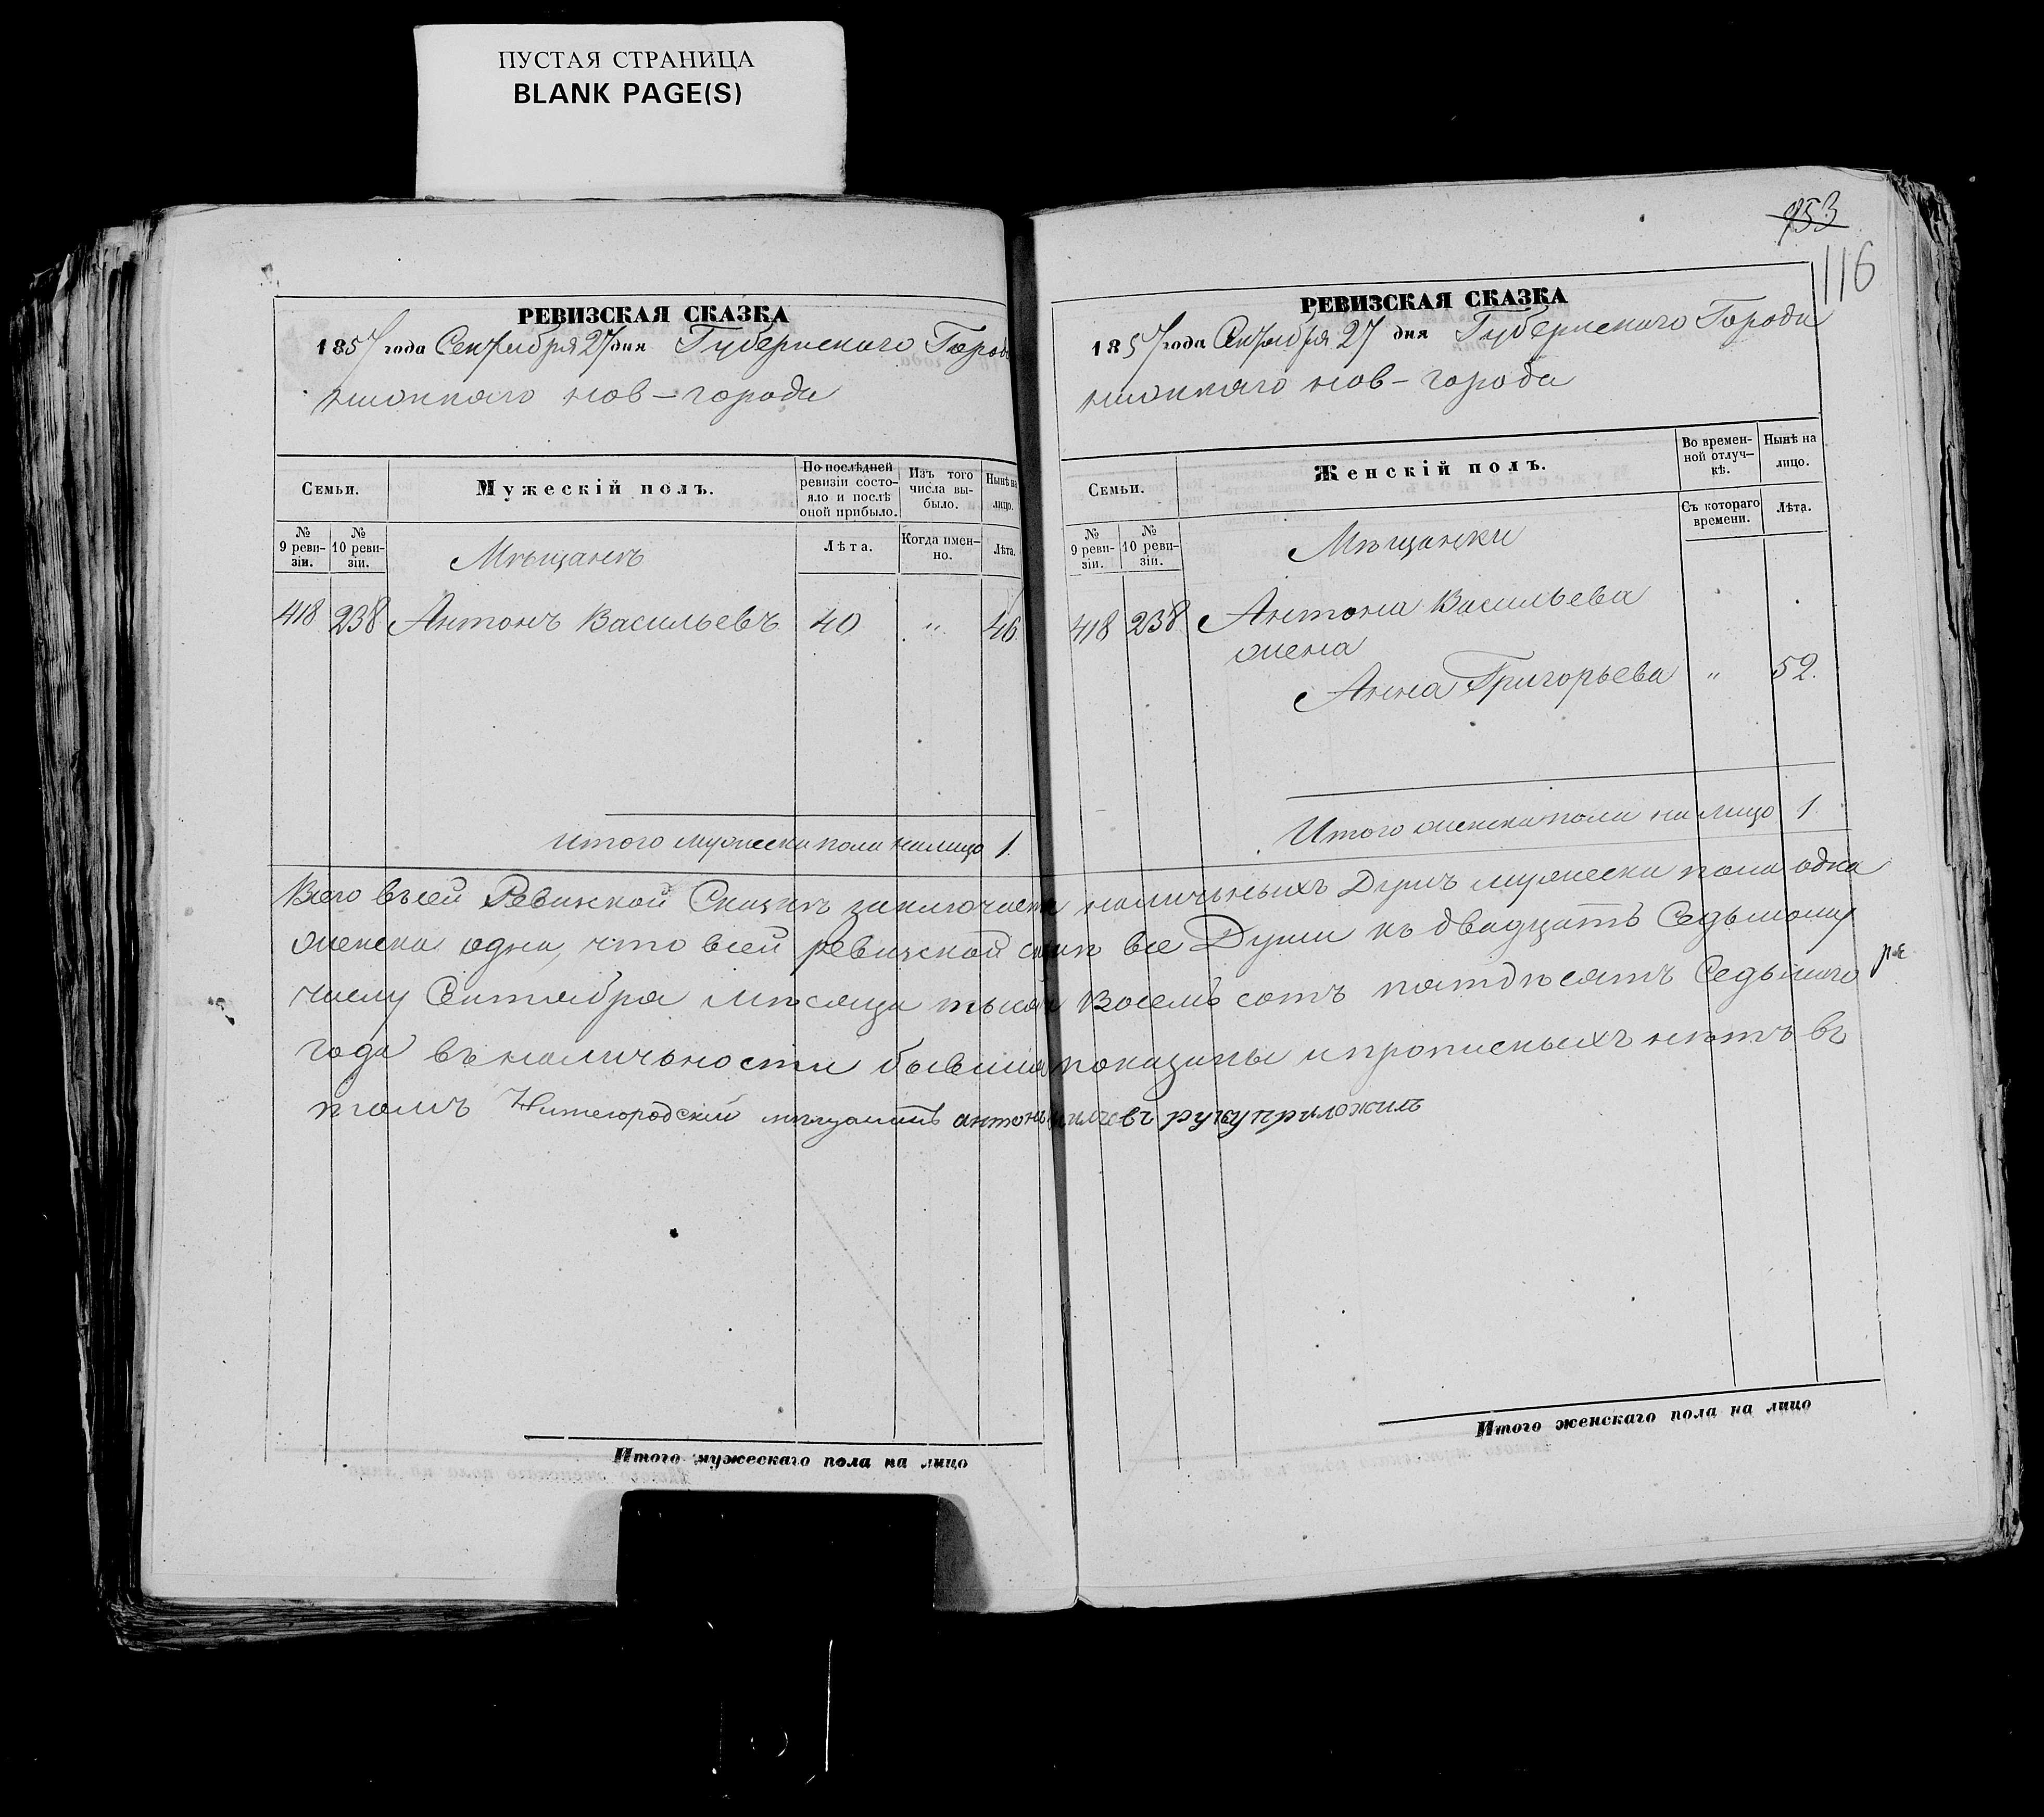 ПУСТАЯ СТРАНИЦА
BLANK PAGE(S)
РЕВИЗСКАЯ СКАЗКА
1857 года Сентября 27 дня Губернскаго Города
нижняго нов-города
Семьи.
Мужескій полъ.
По послѣдней ревизіи состо-
яло и послѣ
оной прибыло.
Изъ того
числа вы-
было.
Нынѣ на
лицо.
№
9 реви-
зіи.
№
10 реви-
зіи.
Мѣщанъ
Лѣта.
Когда имен-
но.
Лѣта.
418 238 Антонъ Васильевъ 40 " 46
итого мужеска пола налицо 1.
953
116
РЕВИЗСКАЯ СКАЗКА
1857 года Сентября 27 дня Губернскаго Города
нижняго нов-города
Семьи.
Женскій полъ.
Во времен-
ной отлуч-
кѣ.
Нынѣ на
лицо.
№
9 реви-
зіи.
№
10 реви-
зіи.
Мѣщанки
Съ котораго
времени.
Лѣта.
418 238 Антона Васильева
жена
Анна Григорьева " 52.
Итого женска пола на лицо 1
Всего въ сей Ревизской Сказкѣ заключается наличныхъ Душъ мужеска пола одна
женска одна, что всей ревизской все Души къ двадцать Седьмому
числу Сентября мѣсяца Восемь сотъ пятдѣсятъ Седьмого
года въ наличности бывшия показаны и прописныхъ нѣтъ въ
томъ Нижегородскій мещанинъ антонъ руку приложилъ
Итого мужескаго пола на лицо
Итого женскаго пола на лицо